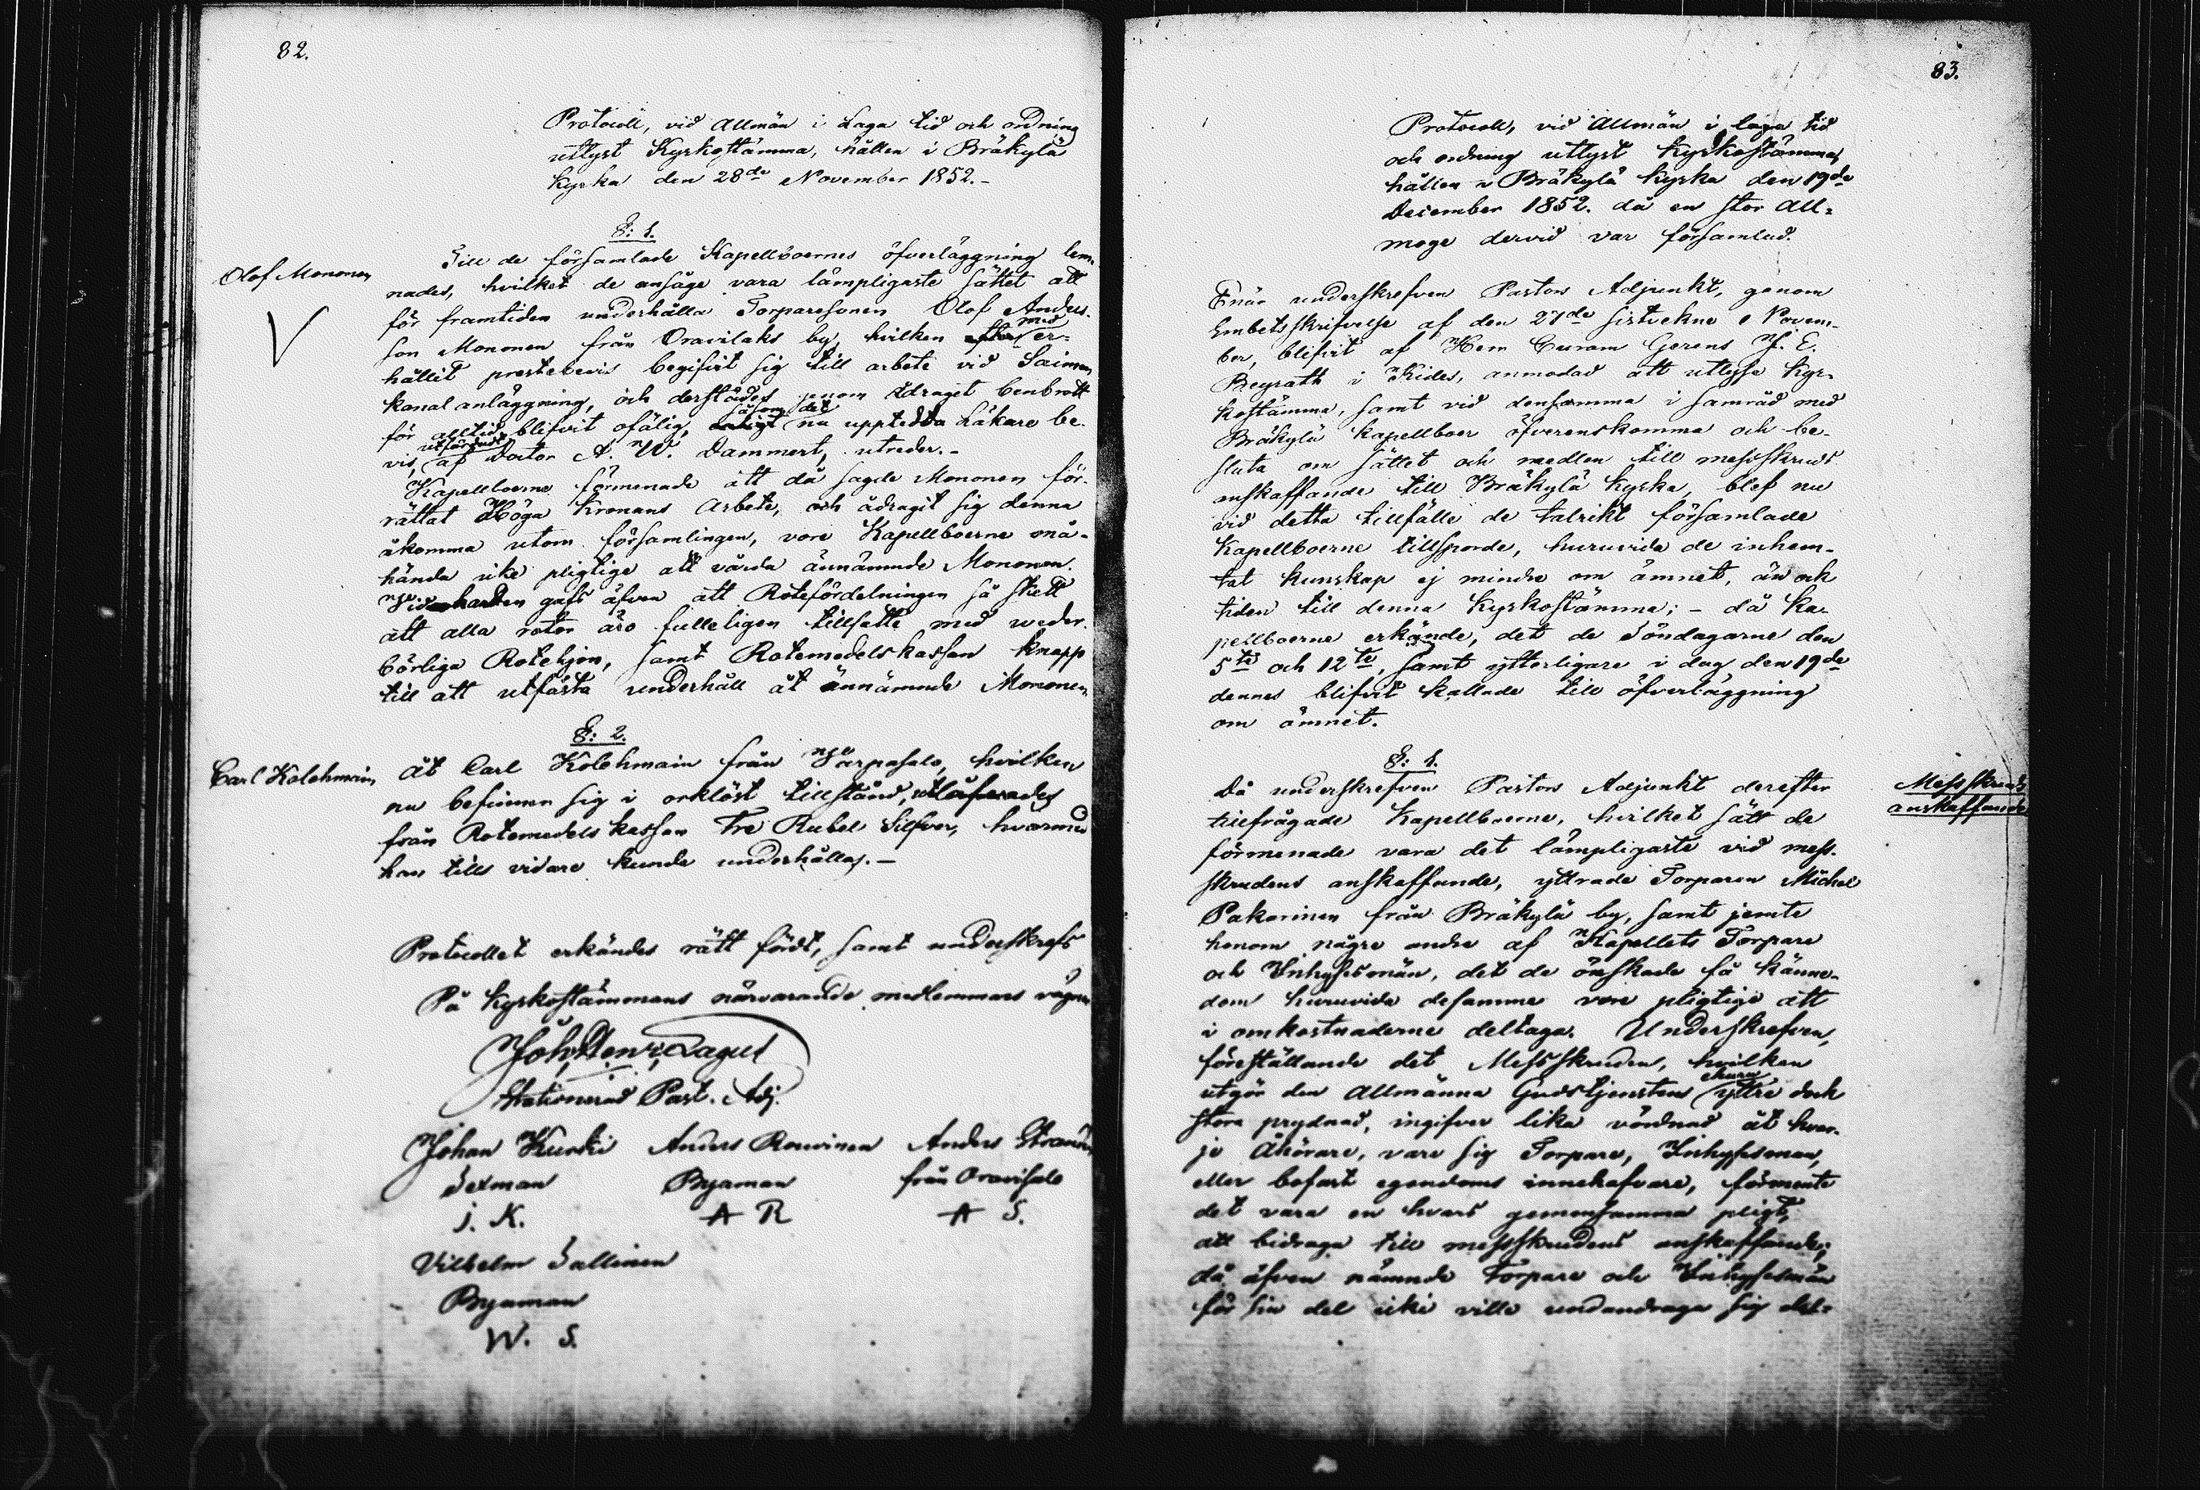 82.
Protocoll, vid Allmän i Laga tid och ordning
utlyst Kyrkostämma, hållen i Bräkylä
Kyrka den 28de November 1852.-
§: 1.
Olof Mononen
Till de församlade Kapellboernes öfverläggning lem-
nades, hvilket de ansåge vara lämpligaste sättet att
för framtiden underhålla Torparesonen Olof Anders-
son Mononen från Oravilaks by, hvilken med er-
hållit prestebevis begifvit sig till arbete vid Saimen
kanal anläggning, och derstädes genom ådraget benbrott
för alltid blifvit ofälig, såsom det nu uppteedda Läkare be-
vis, utfärdadt af Doctor A. W. Dammert, utreder.-
Kapellboerne förmenade att då sagde Mononen för-
rättat Höga Kronans Arbete, och ådragit sig denna
åkomma utom församlingen, vore Kapellboerne må-
hända icke pligtige att vårda ännämnde Mononen.
Vid handen gafs äfven att Rotefördelningen så skett
att alla rotor äro fulleligen tillsatte med veder-
börliga Rotehjon, samt Rotemedelskassan knapp
till att utfästa underhåll åt ännämnde Mononen
§: 2.
Carl Kolehmain
Åt Carl Kolehmain från Varpasalo, hvilken
nu befinner sig i orklöst tillstånd, utlofvades
från Rotemedelskassan Tre Rubel Silfver, hvarmed
han tills vidare kunde underhållas.-
Protocollet erkändes rätt fördt, samt underskrefs
På Kyrkostämmans närvarande medlemmars vägnar
Joh. Henr. Lagus
Stationerad Past. Adj.
Johan Kurki Anders Rouvinen Anders Strand
Sexman Byaman från Oravisalo
J. K. A R A S.
Vilhelm Sallinen
Byaman
W. S.
83.
Protocoll, vid Allmän i laga tid
och ordning utlyst Kyrkostämma,
hållen i Bräkylä Kyrka den 19de
December 1852. då en stor All=
moge dervid var församlad.
Enär underskrefven Pastors Adjunkt, genom
Embetsskrifvelse af den 27de sistvekne Novem-
ber, blifvit af Herr Curam Gerens J. E.
Beyrath i Kides, anmodad att utlysa Kyr-
kostämma, samt vid densamma i samråd med
Bräkylä Kapellboer öfverenskomma och be-
sluta om sättet och medlen till messskruds
anskaffande till Bräkylä Kyrka, blef nu
vid detta tillfälle de talrikt församlade
Kapellboerne tillsporde, huruvida de inhem-
tat kunskap ej mindre om ämnet, än ock
tiden till denna Kyrkostämma; - då Ka-
pellboerne erkände, det de Söndagarne den
5te och 12te, samt ytterligare i dag den 19de
dennes blifvit kallade till öfverläggning
om ämnet.
§: 1.
Messskruds
anskaffande
Då underskrefven Pastors Adjunkt derefter
tillfrågade Kapellboerne, hvilket sätt de
förmenade vara det lämpligaste vid mess-
skrudens anskaffande, yttrade Torparen Michel
Pakarinen från Bräkylä by, samt jemte
honom någre andre af Kapellets Torpare
och Inhysesmän, det de önskade få känne-
dom huruvida desamma vore pligtige att
i omkostnaderne deltaga. Underskrefven,
föreställande det Messskruden, hvilken
utgör den Allmänna Gudstjensten ehuru yttre dock
stora prydnad, ingifver lika vördnad åt hvar-
je Åhörare, vare sig Torpare, Inhysesman,
eller bofast egendoms innehafvare, förmente
det vara en hvars gemensamma pligt,
att bidraga till messskrudens anskaffande;
då äfven nämnde Torpare och Inhysesmän
för sin del icke ville undandraga sig del=